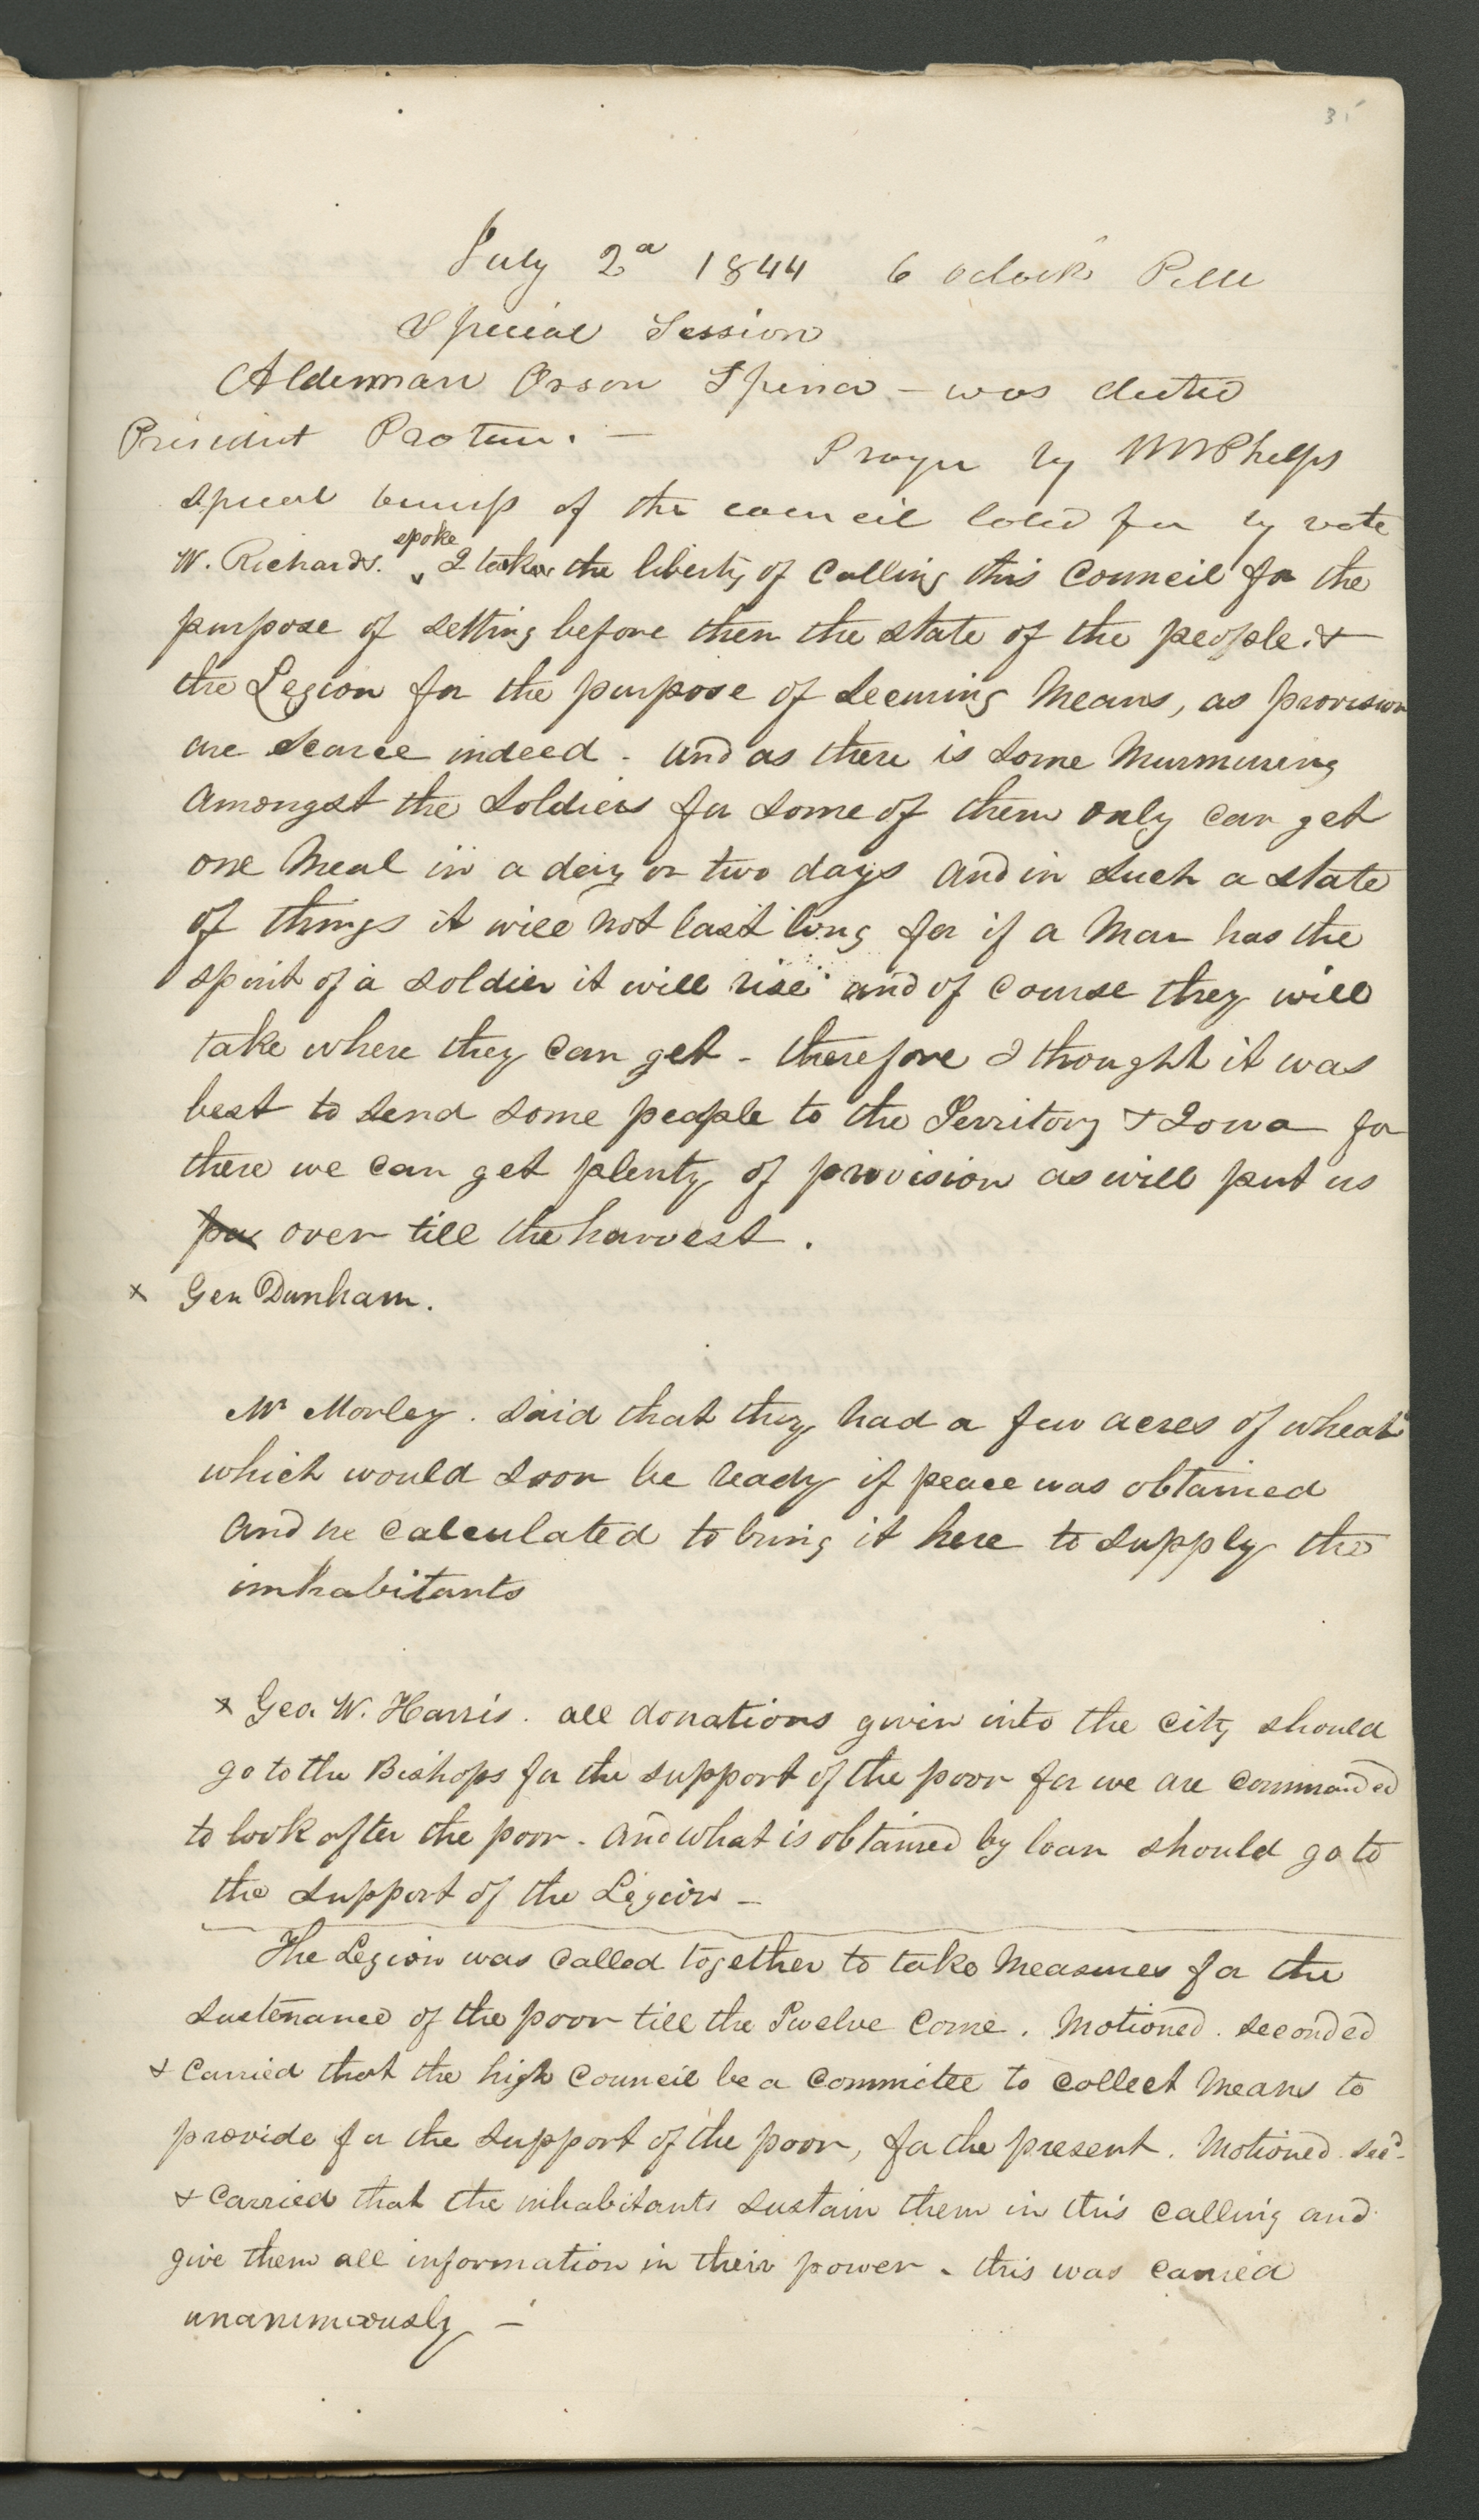 31
July 2d 1844 6 oclock P.M
Special Session
Alderman Orson Spencer - was elected
President Protem. — Prayer by WWPhelps
special business of the council called for by vote
W. Richards. spoke I took the liberty of Calling this Council for the
purpose of setting before them the state of the people. &
the Legion for the purpose of securing Means, as provision
are scarce indeed - and as there is some Murmuring
Amongst the Soldiers for some of them only can get
one Meal in a day or two days and in such a state
of things it will not last long for if a Man has the
spirit of a soldier it will rise and of course they will
take where they can get - therefore I thought it was
best to send some people to the Territory & Iowa for
there we can get plenty of provision as will put us
over till the harvest.
x Gen Dunham.
Mr Morley. said that they had a few acres of wheat
which would soon be ready if peace was obtained
and he calculated to bring it here to supply the
inhabitants
x Geo. W. Harris. all donations given into the city should
go to the Bishops for the support of the poor for we are commanded
to look after the poor - and what is obtained by loan should go to
the support of the Legion —
The Legion was called together to take Measures for the
sustenance of the poor till the Twelve come. Motioned. seconded
& carried that the high Council be a committee to collect Means to
provide for the support of the poor, for the present. Motioned. secd-
& carried that the inhabitants sustain them in this calling and
give them all information in their power - this was carried
unanimously —